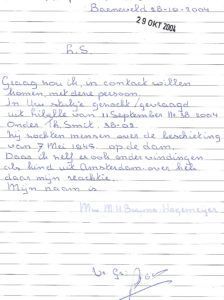 Barneveld 28-10-2004
29 OKT 2004
L.S.
Graag zou ik, in contact willen
komen met deze persoon.
In Uw stukje gezocht/gevraagd
uit 11 September 2004
Onder: Th. Smit.
Zij zochten mensen over de beschieting
van 7 Mei 1945 op de dam.
Daar ik zelf er ook ondervindingen
als kind uit Amsterdam over heb
daar mijn reacktie.
Mijn naam is
Mw M H Buyns-Hagemeyer